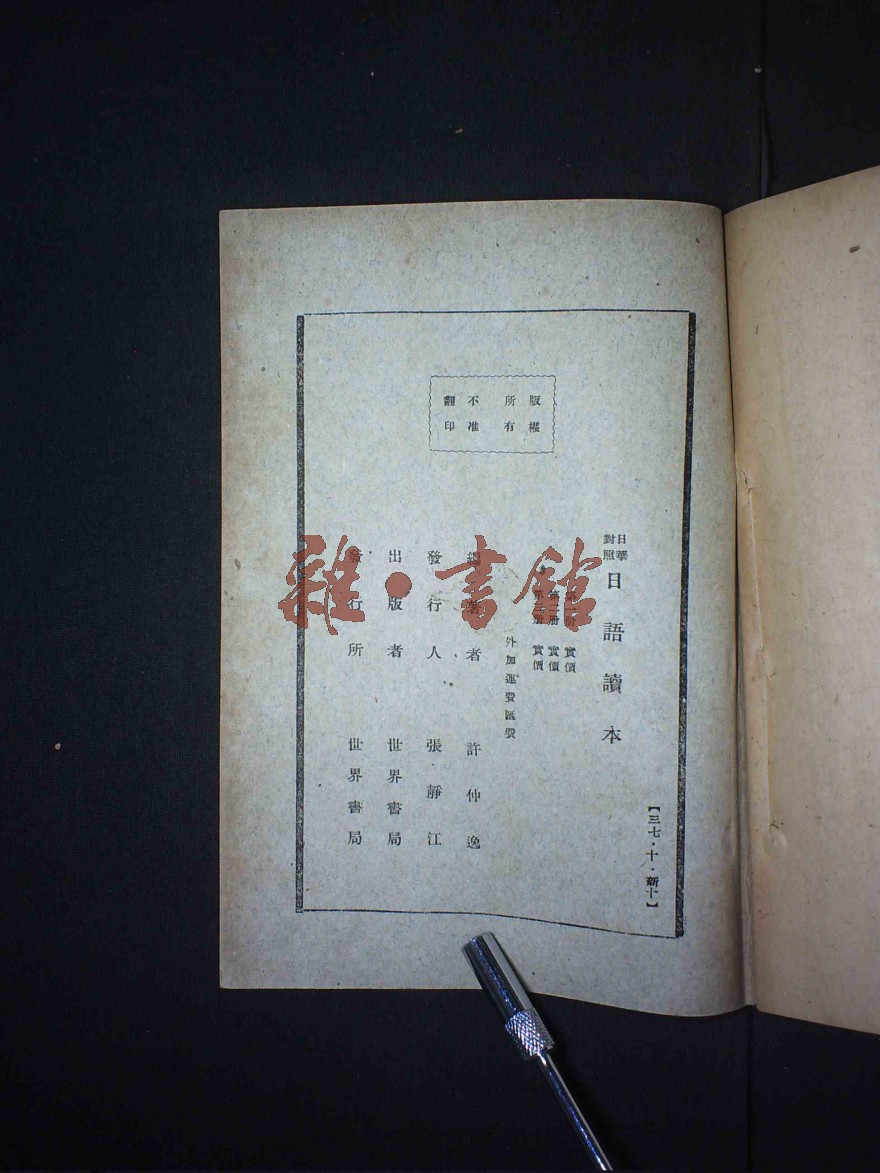 【三七·十·新十】
日華對照
日語讀本
第一册 實價
第二册 實價
第三册 實價
外加運費匯費
編著者 許仲逸
發行人 張靜江
出版者 世界書局
發行所 世界書局
版權
所有
不准
翻印
雜·書館